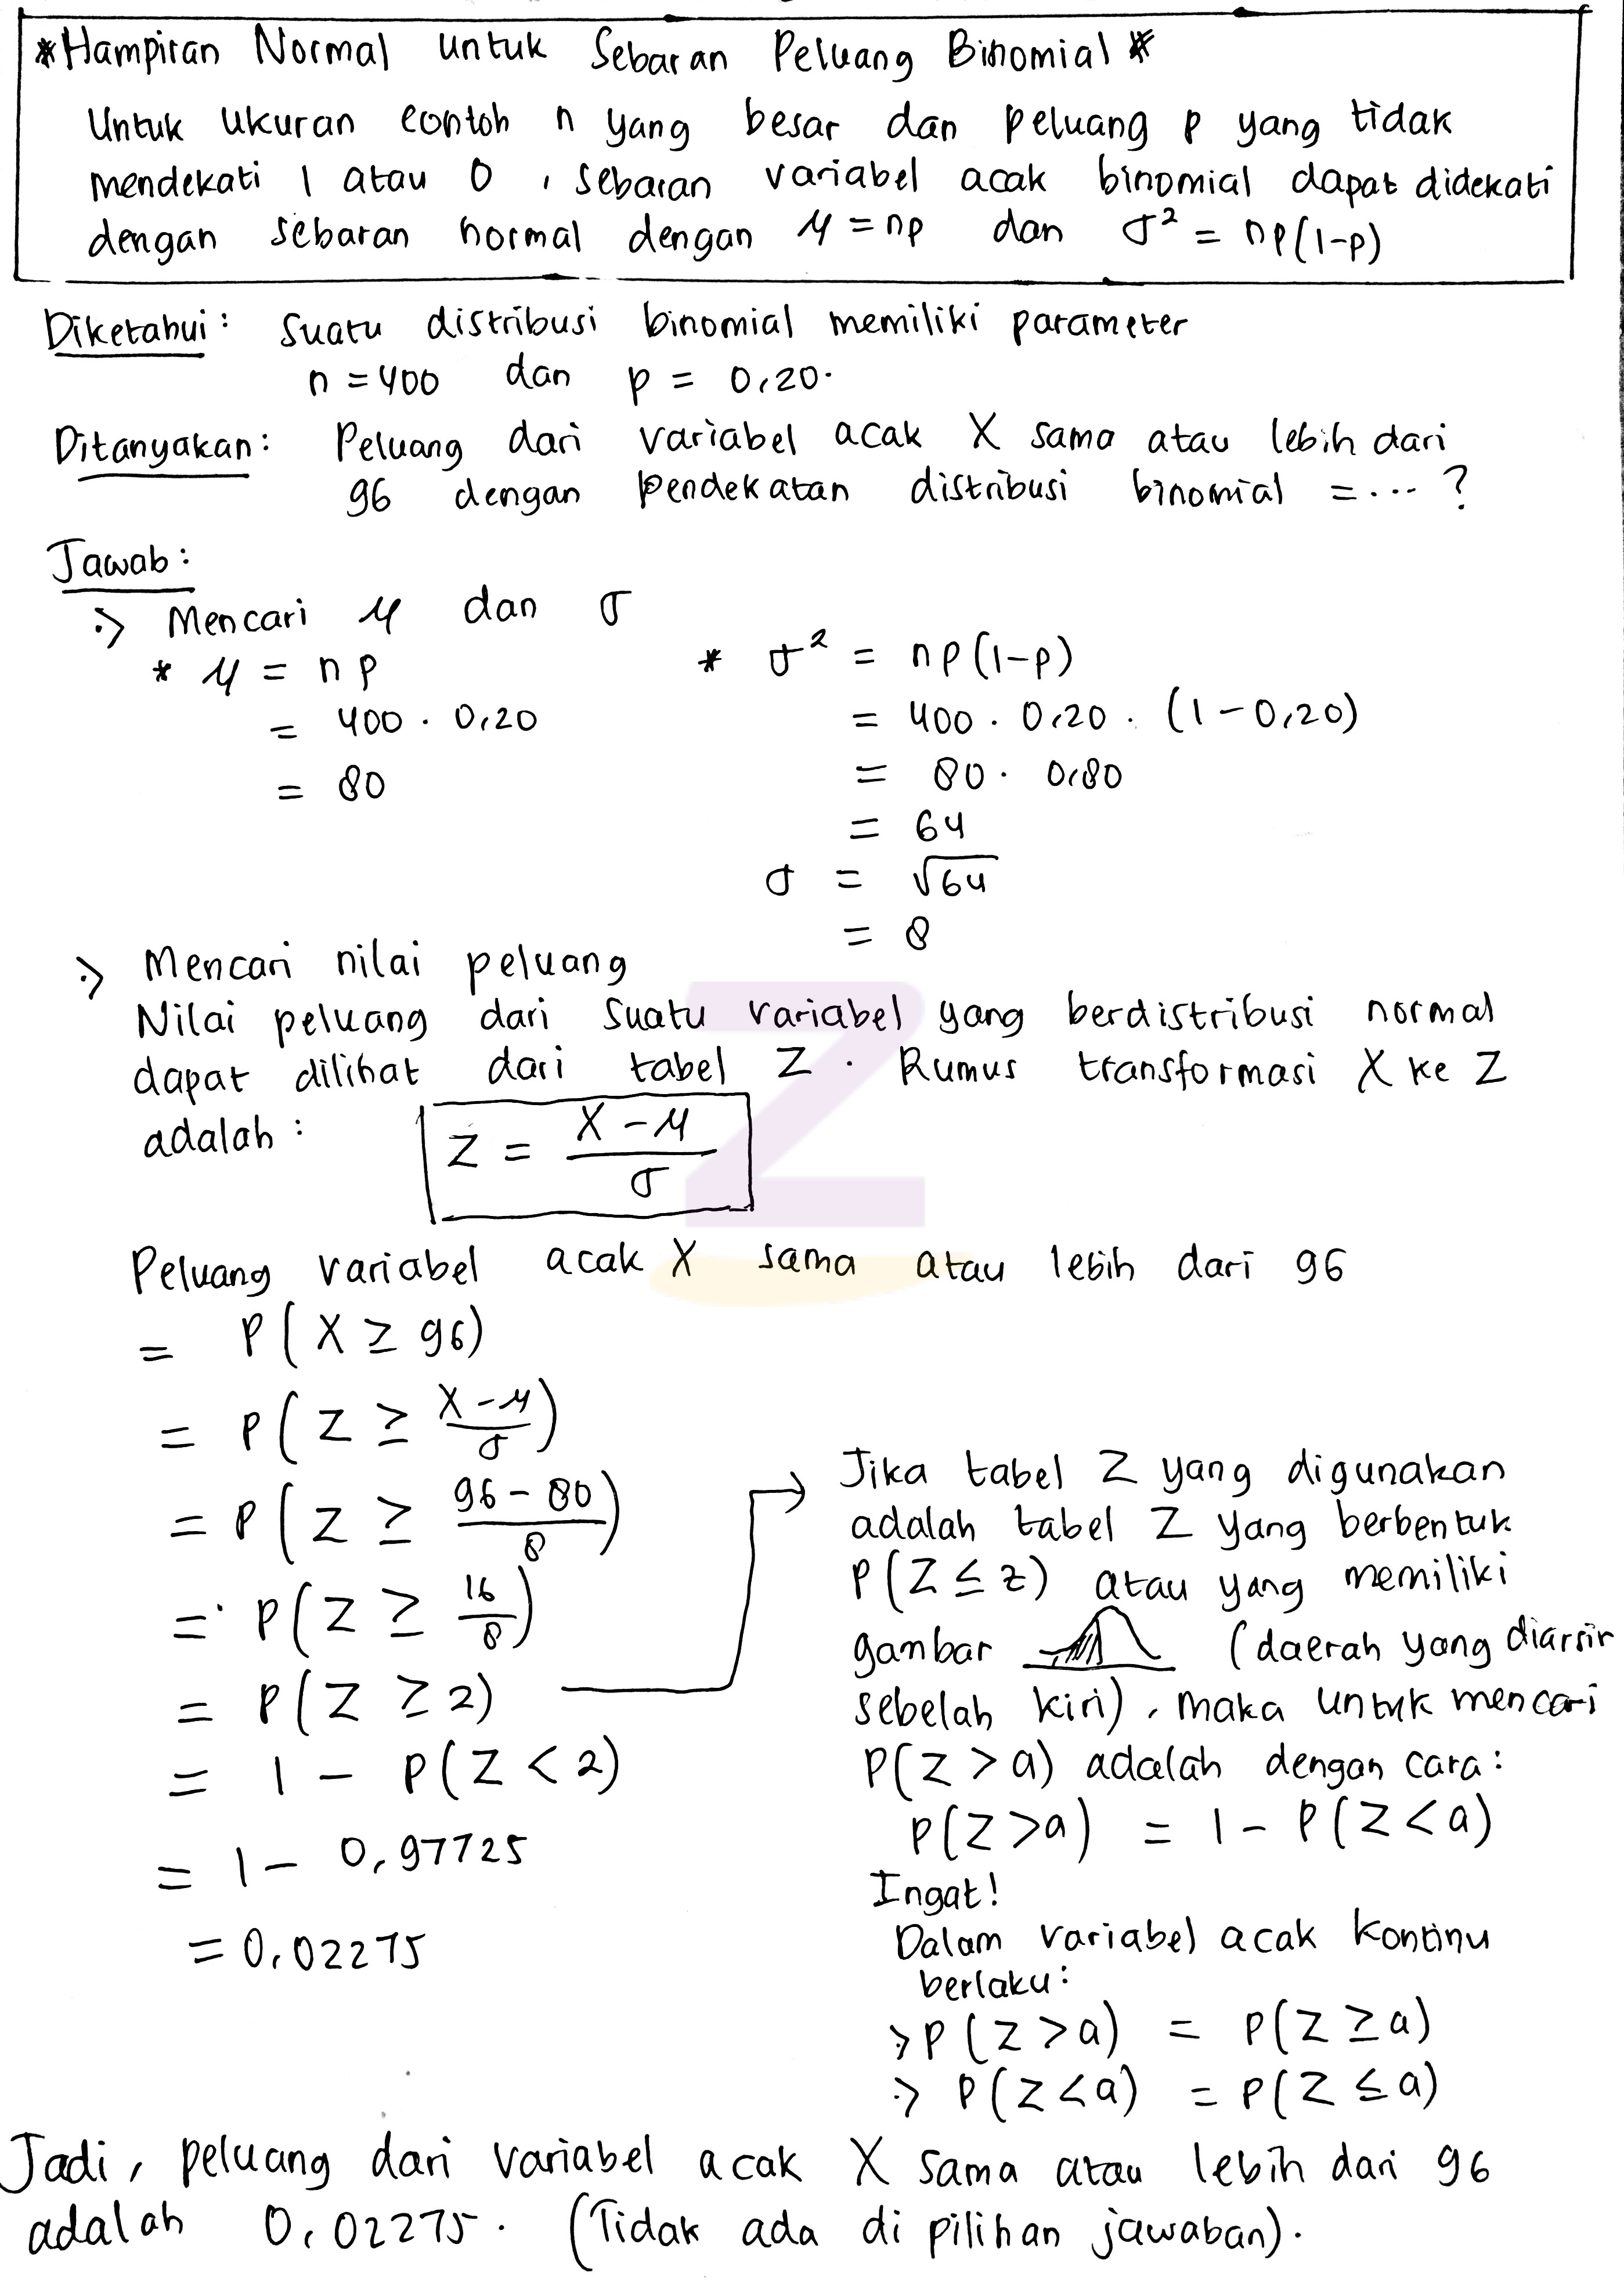 *Hampiran Normal untuk Sebaran Peluang Binomial*
Untuk ukuran contoh n yang besar dan peluang p yang tidak
mendekati 1 atau 0, sebaran variabel acak binomial dapat didekati
dengan sebaran normal dengan μ = np dan σ² = np(1-p)
Diketahui: Suatu distribusi binomial memiliki parameter
n = 400 dan p = 0,20.
Ditanyakan: Peluang dari variabel acak X sama atau lebih dari
96 dengan pendekatan distribusi binomial = ... ?
Jawab:
:> Mencari μ dan σ
* μ = np
= 400 . 0,20
= 80
* σ² = np(1-p)
= 400 . 0,20 . (1-0,20)
= 80 . 0,80
= 64
σ = √64
= 8
:> Mencari nilai peluang
Nilai peluang dari suatu variabel yang berdistribusi normal
dapat dilihat dari tabel Z. Rumus transformasi X ke Z
adalah: Z = (X-μ)/σ
Peluang variabel acak X sama atau lebih dari 96
= P(X ≥ 96)
= P(Z ≥ (X-μ)/σ)
= P(Z ≥ (96-80)/8)
= P(Z ≥ 16/8)
= P(Z ≥ 2)
= 1 - P(Z < 2)
= 1 - 0,97725
= 0,02275
Jika tabel Z yang digunakan
adalah tabel Z yang berbentuk
P(Z ≤ z) atau yang memiliki
gambar (daerah yang diarsir
sebelah kiri), maka untuk mencari
P(Z > a) adalah dengan cara:
P(Z > a) = 1 - P(Z < a)
Ingat!
Dalam variabel acak kontinu
berlaku:
:> P(Z > a) = P(Z ≥ a)
:> P(Z < a) = P(Z ≤ a)
Jadi, peluang dari variabel acak X sama atau lebih dari 96
adalah 0,02275. (Tidak ada di pilihan jawaban).